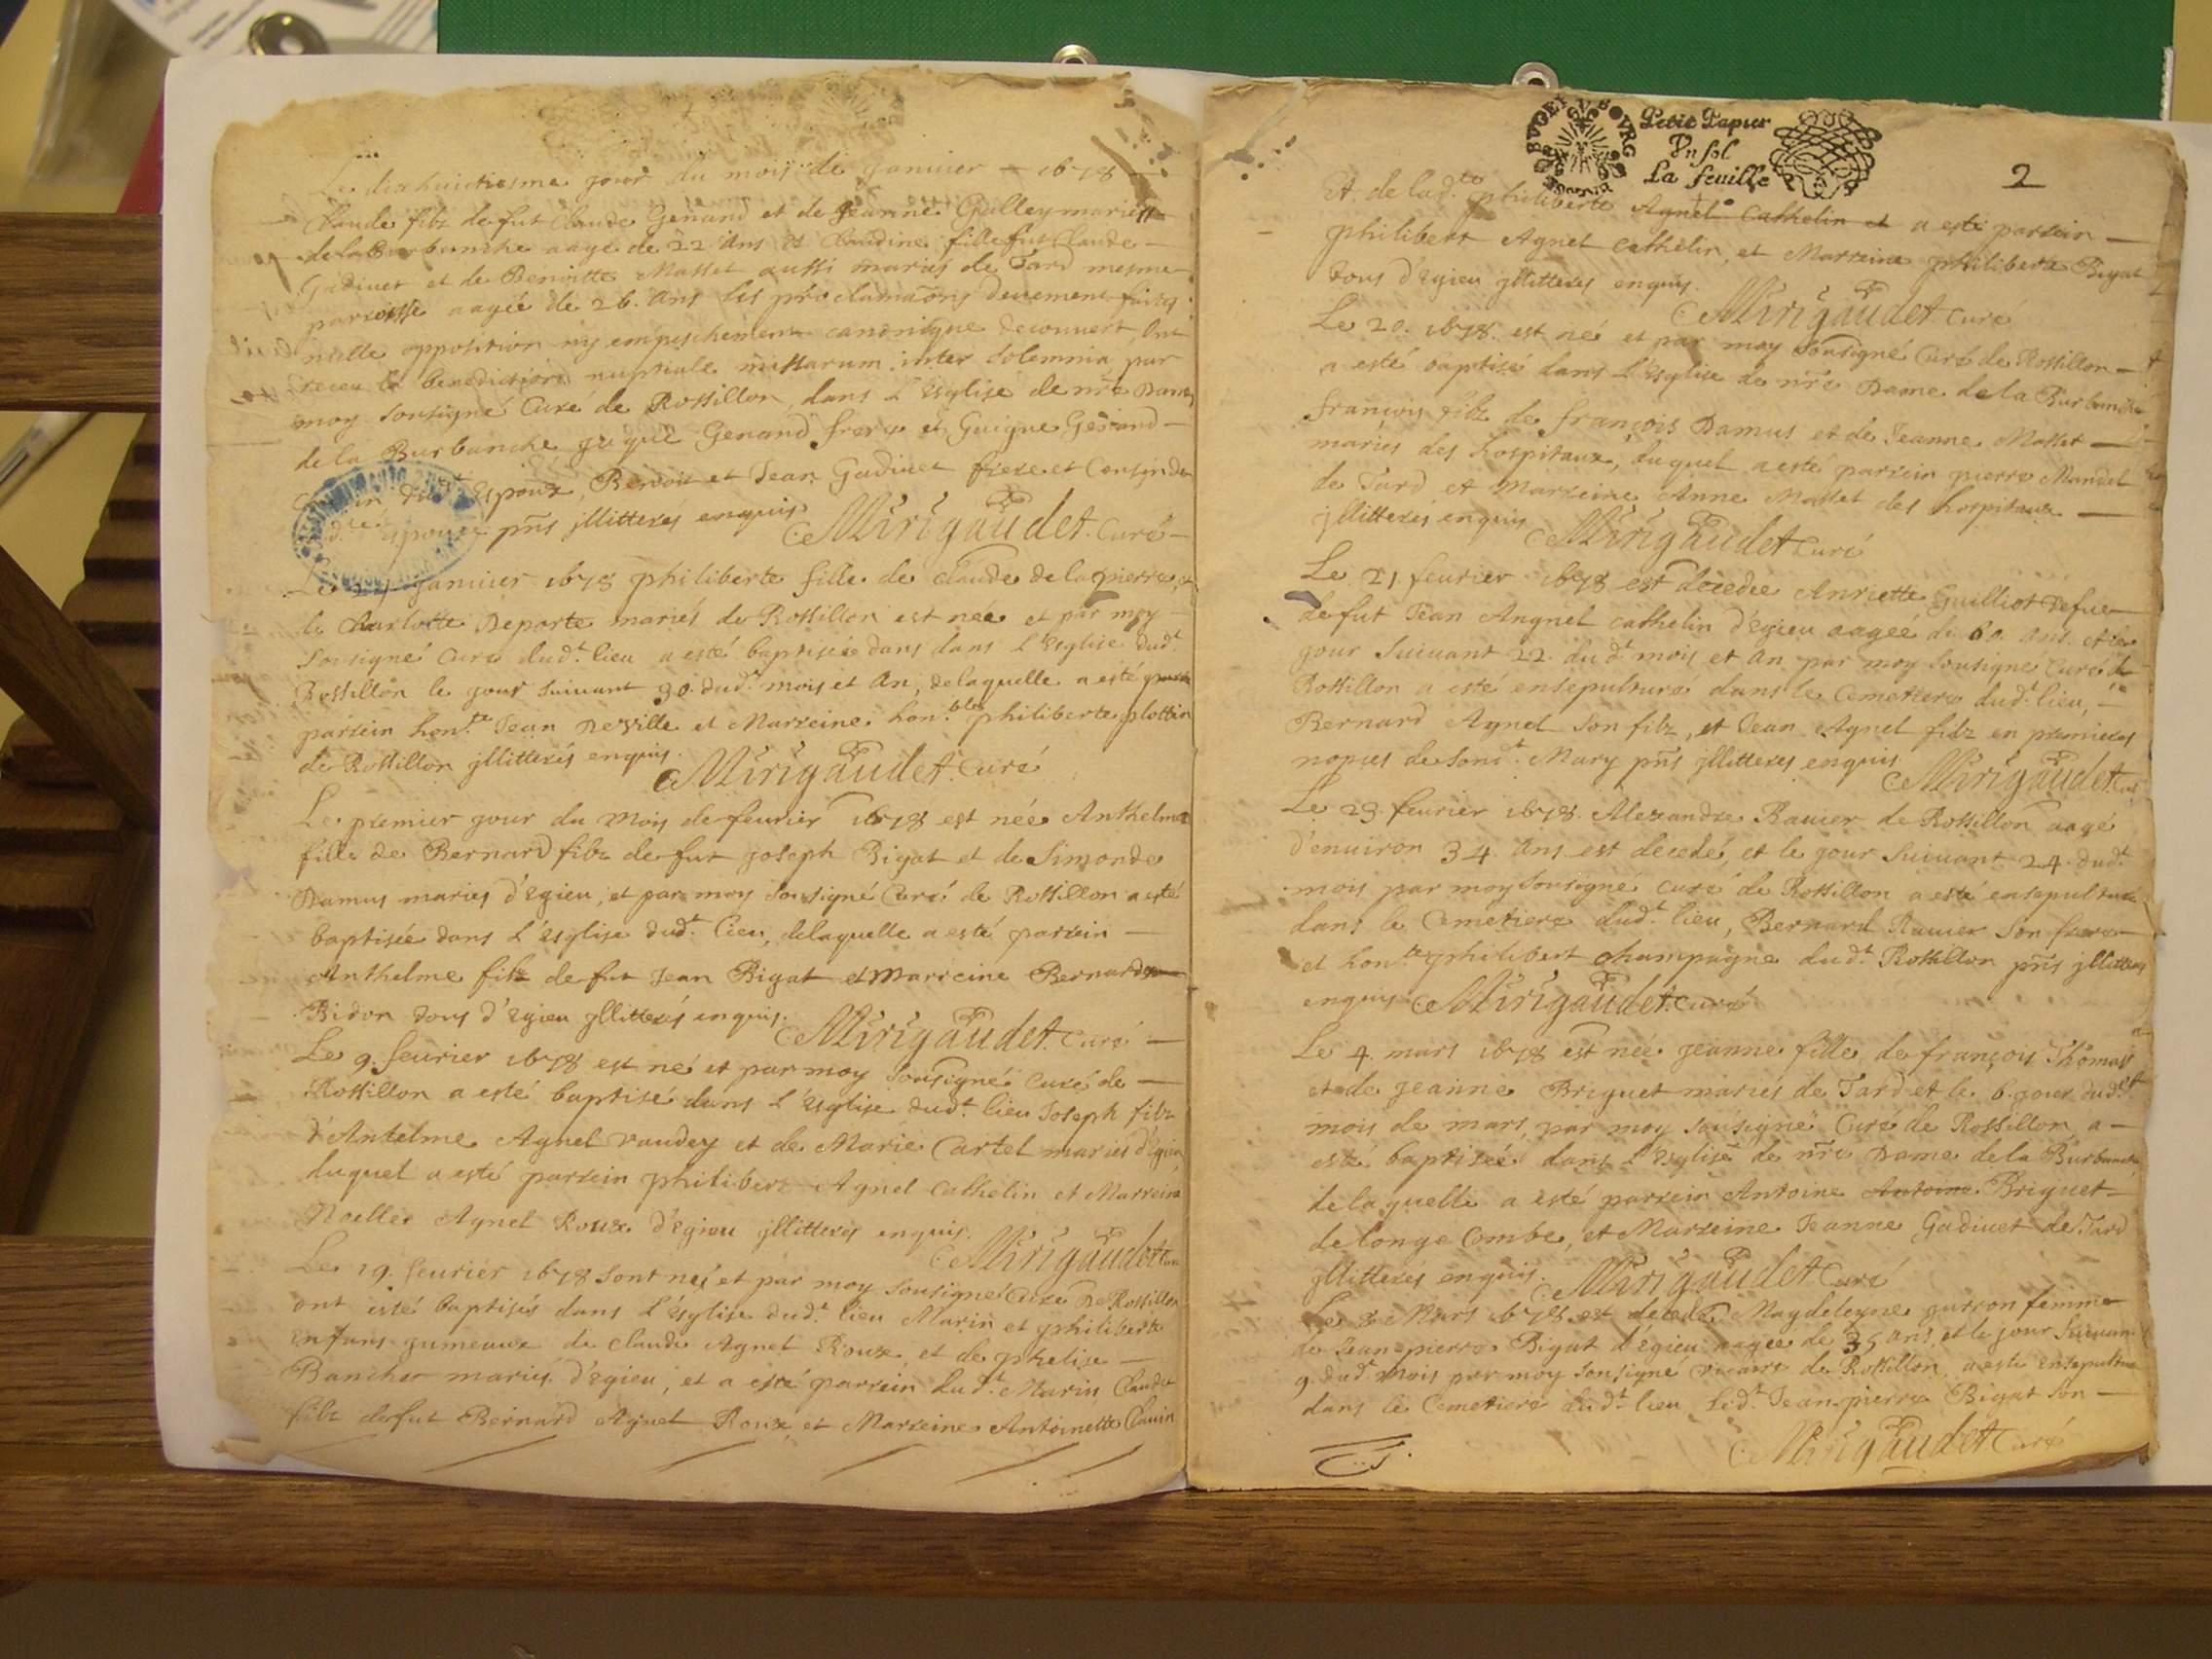 Le dixhuictiesme jour du mois de janvier 1678
Claude filz de fut Claude Genand et de Jeanne Galley mariés
de la Burbanche aagé de 22 ans et Claudine fille fut Claude
Gadiuet et de Benoitte Masset aussi mariés de Tard mesme
paroisse aagée de 26. ans les proclamaons deuement faites
nulle opposition ny empeschement canonique decouuert, ont
receu la benediction nuptiale missarum inter solemnia par
moy sousigné Curé de Rossillon, dans L'Esglise de nre Dame
de la Burbanche Genand frere et Guigue Genand
dud.t Espoux, Benoit et Jean Gadiuet frere et Cousin de
espouse pñs jllitterés enquis. Mirigaudet. Curé
Le janvier 1678 philiberte fille de Claude de la pierre, et
de Charlotte Deporte mariés de Rossillon est née et par moy
Sousigné Curé dud.t lieu a esté baptisée dans dans L'Esglise dud.t
Rossillon le jour suiuant 30. dud.t mois et an, de laquelle a esté
parrein hon.te Jean Deville et Marreine hon.ble philiberte plottin
de Rossillon jllitterés enquis. Mirigaudet. Curé
Le premier jour du Mois de feurier 1678 est née Anthelma
fille de Bernard filz de fut joseph Bigat et de Simonde
Damus mariés d'Egieu, et par moy Sousigné Curé de Rossillon a esté
baptisée dans L'Esglise dud.t lieu, de laquelle a esté parrein
Anthelme filz de fut Jean Bigat et Marreine Bernarde
Bidon tous d'Egieu jllitterés enquis. Mirigaudet. Curé
Le 9. feurier 1678 est né et par moy Sousigné Curé de
Rossillon a esté baptisé dans L'Esglise dud.t lieu Joseph filz
d'Antelme Agnel vaudey et de Marie Cartel mariés d'Egieu,
duquel a esté parrein philibert Agnel Cathelin et Marreine
Noelle Agnel Roux d'Egieu jllitterés enquis. Mirigaudet
Le 19. feurier 1678 Sont nés et par moy Sousigné Curé De Rossillon
ont esté baptisés dans L'Esglise dud.t lieu Marin et philiberte
enfans gumeaux de Claude Agnel Roux, et de phelise
Bancher mariés d'Egieu, et a esté parrein dud.t Marin Claude
filz de fut Bernard Agnel Roux, et Marreine Antoinette Clauin
BUGEY BOURG
Petit Papier
Un sol
La feuille
2
Et de lad.te philiberte Agnel Cathelin et a esté parrein
philibert Agnel Cathelin, et Marreine philiberte Bigat
tous d'Egieu jllitterés enquis. Mirigaudet. Curé
Le 20. 1678. est né et par moy Sousigné Curé de Rossillon
a esté baptisé dans L'Esglise de nre Dame de la Burbanche
françois filz de françois Damus et de Jeanne Masset
mariés des hospitaux, duquel a esté parrein pierre Mandet
de Tard et Marreine Anne Masset des hospitaux
jllitterés enquis Mirigaudet Curé
Le 21. feurier 1678 est decedée Anriette Guilliot
de fut Jean Angnel Cathelin d'Egieu aagée de 60. ans. et le
jour suiuant 22. dud.t mois et an par moy Sousigné Curé de
Rossillon a esté ensepulturé dans le Cemetiere dud.t lieu,
Bernard Agnel son filz, et Jean Agnel filz en premieres
nopces de Sond.t Mary pñs jllitterés enquis Mirigaudet Curé
Le 23. feurier 1678. Alexandre Rauier de Rossillon aagé
d'enuiron 34. ans est decedé, et le jour suiuant 24. dud.t
mois par moy Sousigné Curé de Rossillon a esté ensepulturé
dans le Cemetiere dud.t lieu, Bernard Rauier son frere
et hon.te philibert Champagne dud.t Rossillon pñs jllitterés
enquis. Mirigaudet. Curé
Le 4. mars 1678 est née jeanne fille de françois Thomas
et de jeanne Briguet mariés de Tard et le 6. jour dud.t
mois de mars, par moy Sousigné Curé de Rossillon a
esté baptisée dans L'Esglise de nre Dame de la Burbanche
de laquelle a esté parrein Antoine Antoine Briguet
de longe Combe, et Marreine Jeanne Gadiuet de Tard
jllitterés enquis. Mirigaudet Curé
Le 8 Mars 1678. est decedé Magdeleyne femme
de Jean pierre Bigat d'Egieu aagée de 35 ans, et le jour Suiuant
9. dud.t mois par moy Sousigné de Rossillon a esté ensepulture
dans le Cemetiere dud.t lieu led.t Jean pierre Bigat son
Mirigaudet Curé